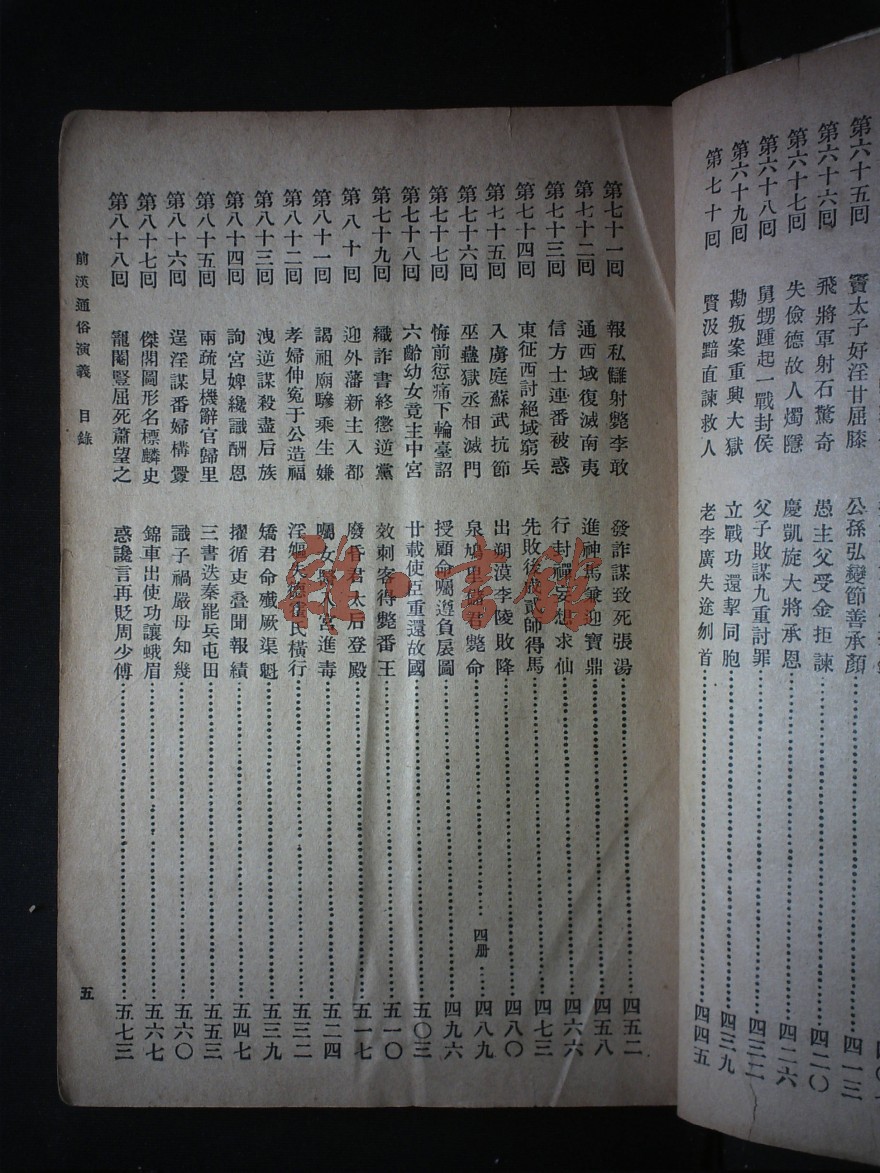 第六十五回 竇太子好淫甘屈膝 公孫弘變節善承顏 四一三
第六十六回 飛將軍射石驚奇 愚主父受金拒諫 四二〇
第六十七回 失儉德故人燭隱 慶凱旋大將承恩 四二六
第六十八回 舅甥踵起一戰封侯 父子敗謀九重討罪 四三二
第六十九回 勘叛案重興大獄 立戰功還挈同胞 四三九
第七十回 賢汲黯直諫救人 老李廣失途刎首 四四五
第七十一回 報私讎射斃李敢 發詐謀致死張湯 四五二
第七十二回 通西域復滅南夷 進神馬兼迎寶鼎 四五八
第七十三回 信方士連番被惑 行封禪妄想求仙 四六六
第七十四回 東征西討絕域窮兵 先敗後成貳師得馬 四七三
第七十五回 入虜庭蘇武抗節 出朔漠李陵敗降 四八〇
第七十六回 巫蠱獄丞相滅門 泉鳩里儲君斃命 四册 四八九
第七十七回 悔前愆痛下輪臺詔 授顧命囑遵負扆圖 四九六
第七十八回 六齡幼女竟主中宮 廿載使臣重還故國 五〇三
第七十九回 織詐書終懲逆黨 效刺客得斃番王 五一〇
第八十回 迎外藩新主入都 廢昏君太后登殿 五一七
第八十一回 謁祖廟驂乘生嫌 囑女醫入宮進毒 五二四
第八十二回 孝婦伸冤于公造福 淫嫗失德霍氏橫行 五三二
第八十三回 洩逆謀殺盡后族 矯君命殲厥渠魁 五三九
第八十四回 詢宮婢纔識酬恩 擢循吏疊聞報績 五四七
第八十五回 兩疏見機辭官歸里 三書迭奏罷兵屯田 五五三
第八十六回 逞淫謀番婦構釁 識子禍嚴母知幾 五六〇
第八十七回 傑閣圖形名標麟史 錦車出使功讓蛾眉 五六七
第八十八回 寵閹豎屈死蕭望之 惑讒言再貶周少傅 五七三
前漢通俗演義 目錄 五